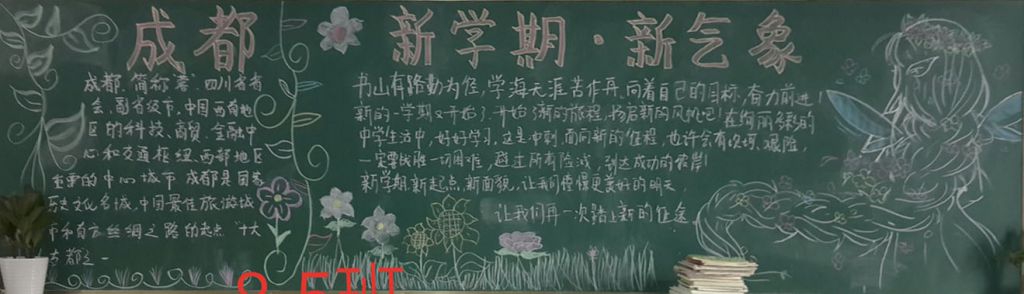 成都
成都,简称蓉,四川省省
会,副省级市,中国西南地
区的科技、商贸、金融中
心和交通枢纽,西部地区
重要的中心城市 成都是国家
历史文化名城,中国最佳旅游城
市和南方丝绸之路的起点 十大
古都之一
新学期·新气象
书山有路勤为径,学海无涯苦作舟,向着自己的目标,奋力前进!
新的一学期又开始了,开始了新的旅程,扬起新的风帆吧!在绚丽多彩的
中学生活中,好好学习,这是冲刺,面向新的征程,也许会有坎坷、艰险,
一定要战胜一切困难,避过所有险滩,到达成功的彼岸!
新学期,新起点,新面貌,让我们憧憬更美好的明天,
让我们再一次踏上新的征途